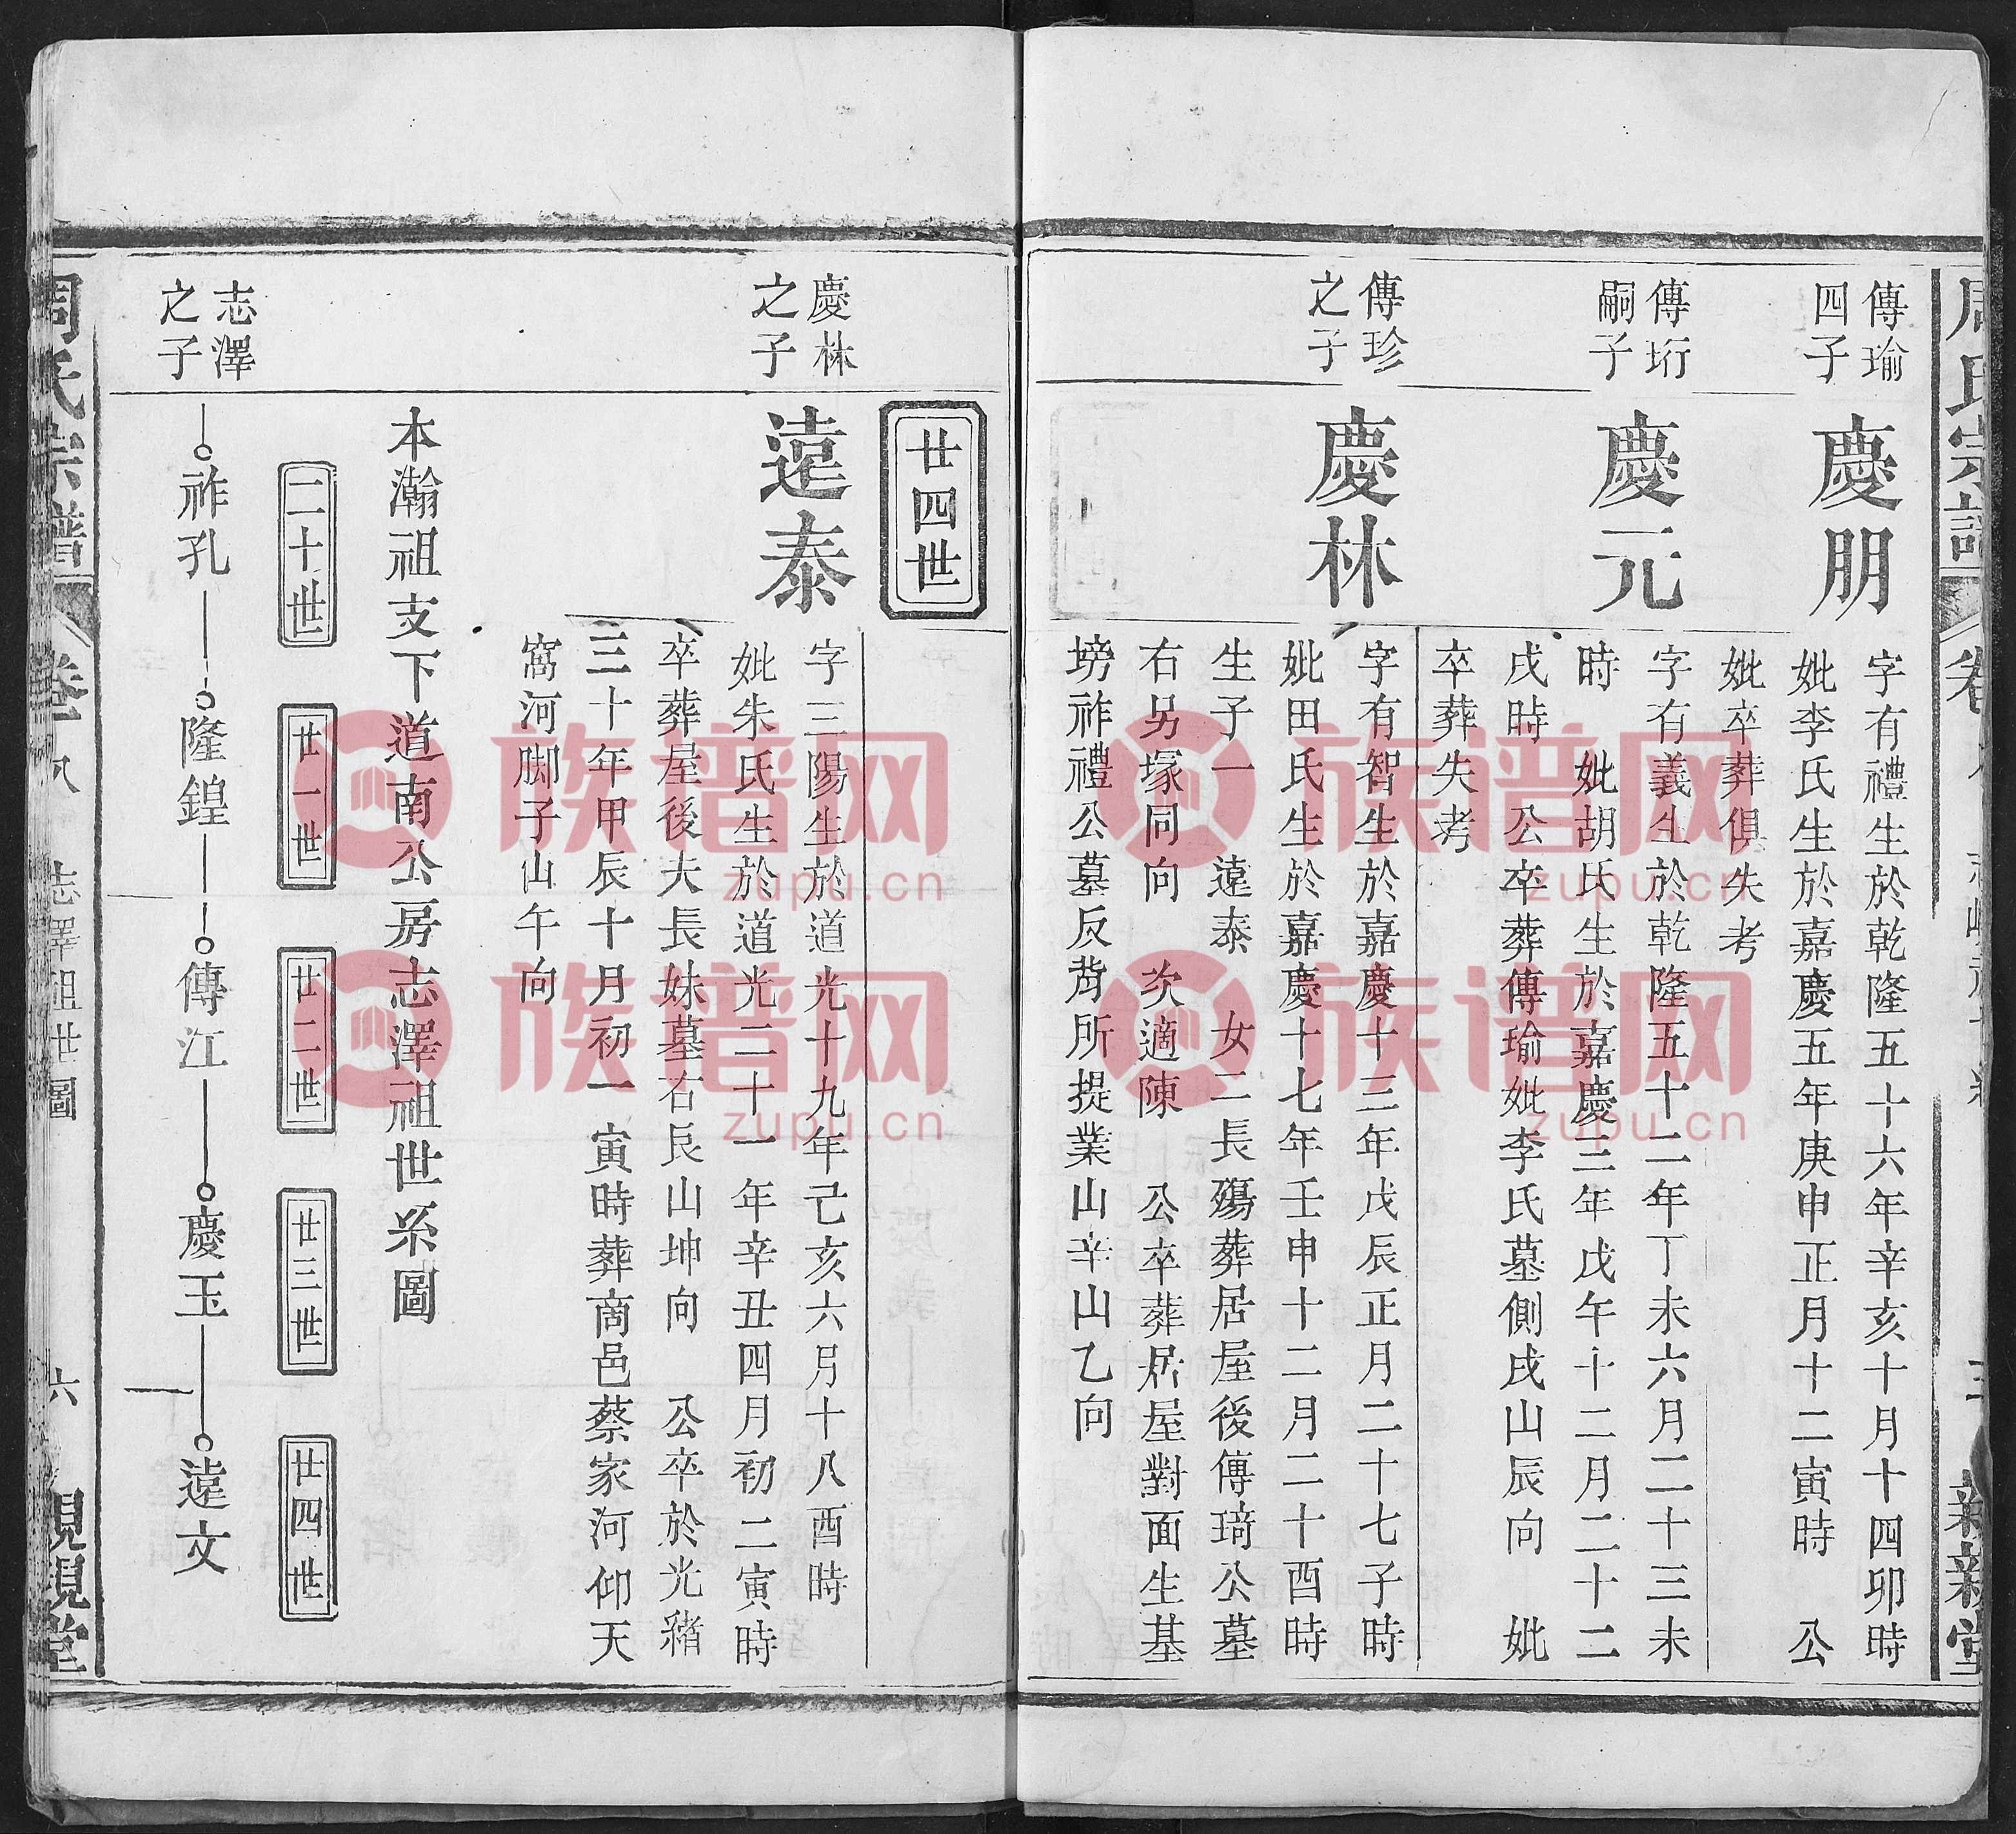 周氏宗譜
親親堂
傳瑜
四子
慶朋
字有禮生於乾隆五十六年辛亥十月十四卯時
妣李氏生於嘉慶五年庚申正月十二寅時　公
妣卒葬俱失考
傳珩
嗣子
慶元
字有義生於乾隆五十二年丁未六月二十三未
時　妣胡氏生於嘉慶三年戊午十二月二十二
戌時　公卒葬傳瑜妣李氏墓側戌山辰向　妣
卒葬失考
傳珍
之子
慶林
字有智生於嘉慶十三年戊辰正月二十七子時
妣田氏生於嘉慶十七年壬申十二月二十酉時
生子一　遠泰　女二長殤葬居屋後傳琦公墓
右另塚同向　次適陳　公卒葬居屋對面生基
塝祚禮公墓反背所提業山辛山乙向
廿四世
慶林
之子
遠泰
字三陽生於道光十九年己亥六月十八酉時
妣朱氏生於道光二十一年辛丑四月初二寅時
卒葬屋後夫長妹墓右艮山坤向　公卒於光緒
三十年甲辰十月初一寅時葬商邑蔡家河仰天
窩河脚子山午向
本瀚祖支下道南公房志澤祖世系圖
二十世
廿一世
廿二世
廿三世
廿四世
志澤
之子
祚孔
隆鍠
傳江
慶玉
遠文
周氏宗譜
卷十八
志澤祖世圖
六
親親堂
族谱网
zupu.cn
族谱网
zupu.cn
族谱网
zupu.cn
族谱网
zupu.cn